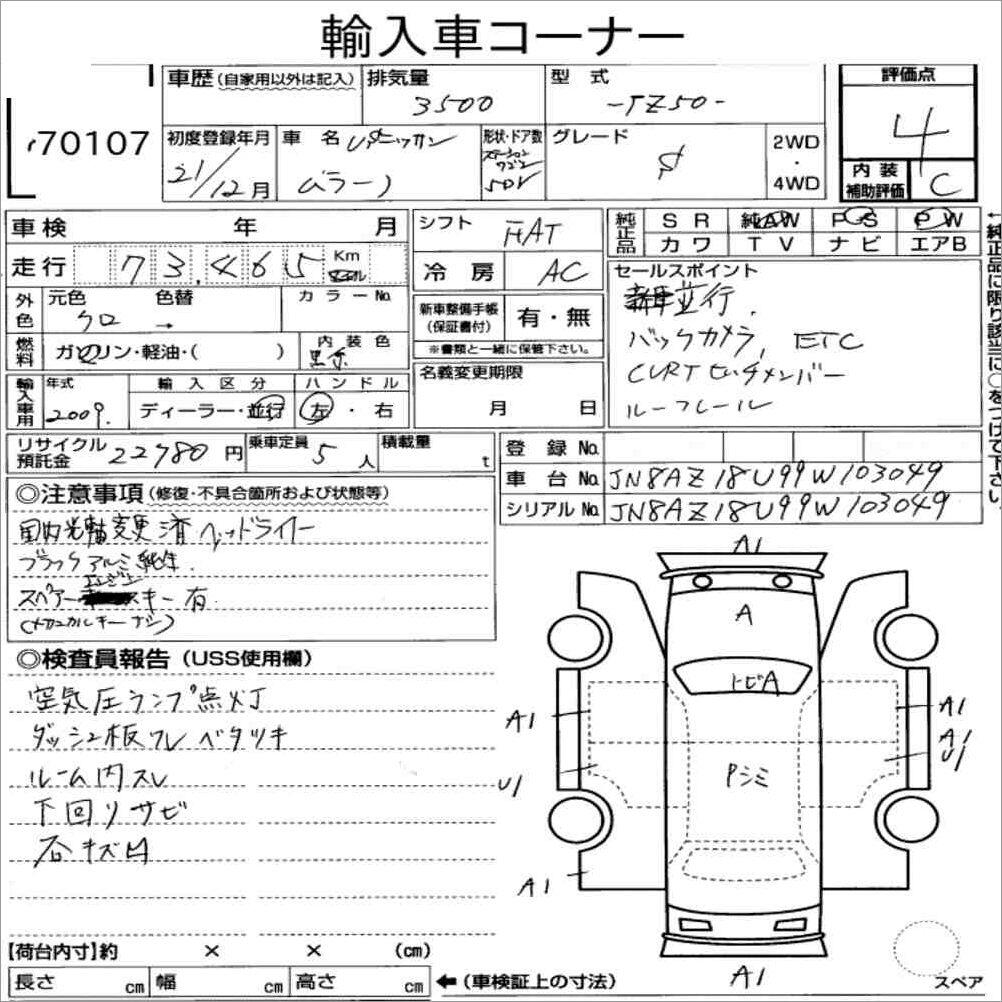 輸入車コーナー
70107
車歴(自家用以外は記入)
排気量
3500
型式
-TZ50-
評価点
4
内装補助評価
C
初度登録年月
21/12月
車名
USニッサン
ムラーノ
形状・ドア数
ステーションワゴン
5DV
グレード
S
2WD
・
4WD
車検 年 月
走行 73,465 Km
シフト
FAT
冷房
AC
純正品
SR 純AW PS PW
カワ TV ナビ エアB
←純正品に限り該当に○をつけて下さい。
外色
元色 色替 カラーNo.
クロ →
燃料
ガソリン・軽油・( )
内装色
黒系
新車整備手帳
(保証書付)
有・無
※書類と一緒に保管下さい。
セールスポイント
新車並行.
バックカメラ, ETC
CURTヒッチメンバー
ルーフレール
輸入車用
年式
2009.
輸入区分
ディーラー・並行
ハンドル
左・右
名義変更期限
月 日
リサイクル預託金 22780円
乗車定員 5人
積載量 t
登録No.
車台No. JN8AZ18U99W103049
シリアルNo. JN8AZ18U99W103049
◎注意事項(修復・不具合箇所および状態等)
国内光軸変更済ヘッドライト
ブラックアルミ純正.
スペアーキー有.
(メカニカルキーナシ)
◎検査員報告(USS使用欄)
空気圧ランプ点灯
ダッシュ板スレベタツキ
ルーム内スレ
下回りサビ
石キズ凹
A1
A
トビA
A1
A1
A1
U1
U1
Pシミ
A1
A1
スペア
【荷台内寸】約 × × (cm)
長さ cm 幅 cm 高さ cm ←(車検証上の寸法)